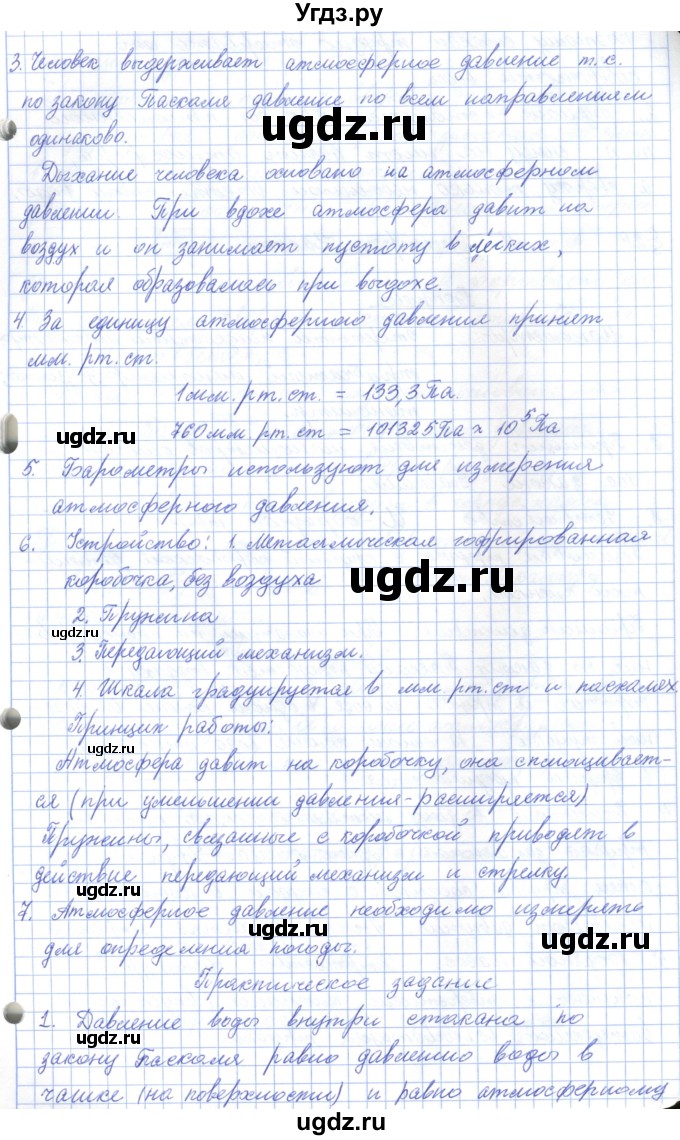 Угдз.ру
3. Человек выдерживает атмосферное давление т.к.
по закону Паскаля давление по всем направлениям
одинаково.
ugdz.ru
Дыхание человека основано на атмосферном
давлении. При вдохе атмосфера давит на
воздух и он занимает пустоту в лёгких,
которая образовалась при выдохе.
4. За единицу атмосферного давления принят
мм. рт. ст.
1мм. рт. ст. = 133,3 Па.
ugdz.ru
760мм. рт. ст = 101325Па ≈ 10⁵ Па
5. Барометры используют для измерения
атмосферного давления.
6. Устройство: 1. Металлическая гофрированная
коробочка, без воздуха
ugdz.ru
2. Пружина
ugdz.ru
3. Передающий механизм.
4. Шкала градуируется в мм. рт. ст и паскалях
Принцип работы:
ugdz.ru
Атмосфера давит на коробочку, она сплющивает-
ся (при уменьшении давления-расширяется)
Пружины, связанные с коробочкой приводят в
действие передающий механизм и стрелку.
ugdz.ru
7. Атмосферное давление необходимо измерять
для определения погоды.
ugdz.ru
Практическое задание
1. Давление воды внутри стакана по
ugdz.ru
закону Паскаля равно давлению воды в
чашке (на поверхности) и равно атмосферному
ugdz.ru